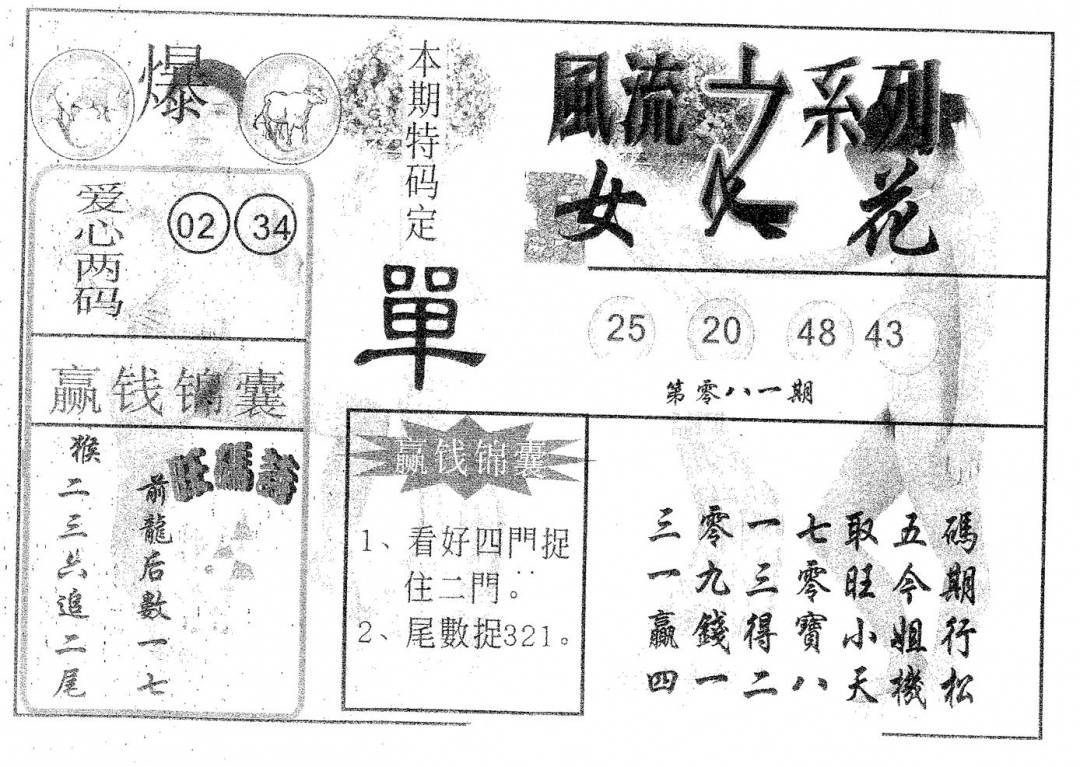 爆
爱心两码
02 34
赢钱锦囊
旺碼詩
前龍后數一七
猴二三六追二尾
本期特码定
單
赢钱锦囊
1、看好四門捉
住二門。
2、尾數捉321。
風流之系列
女人花
25 20 48 43
第零八一期
三零一七取五碼
一九三零旺今期
贏錢得寶小姐行
四一二八天機松